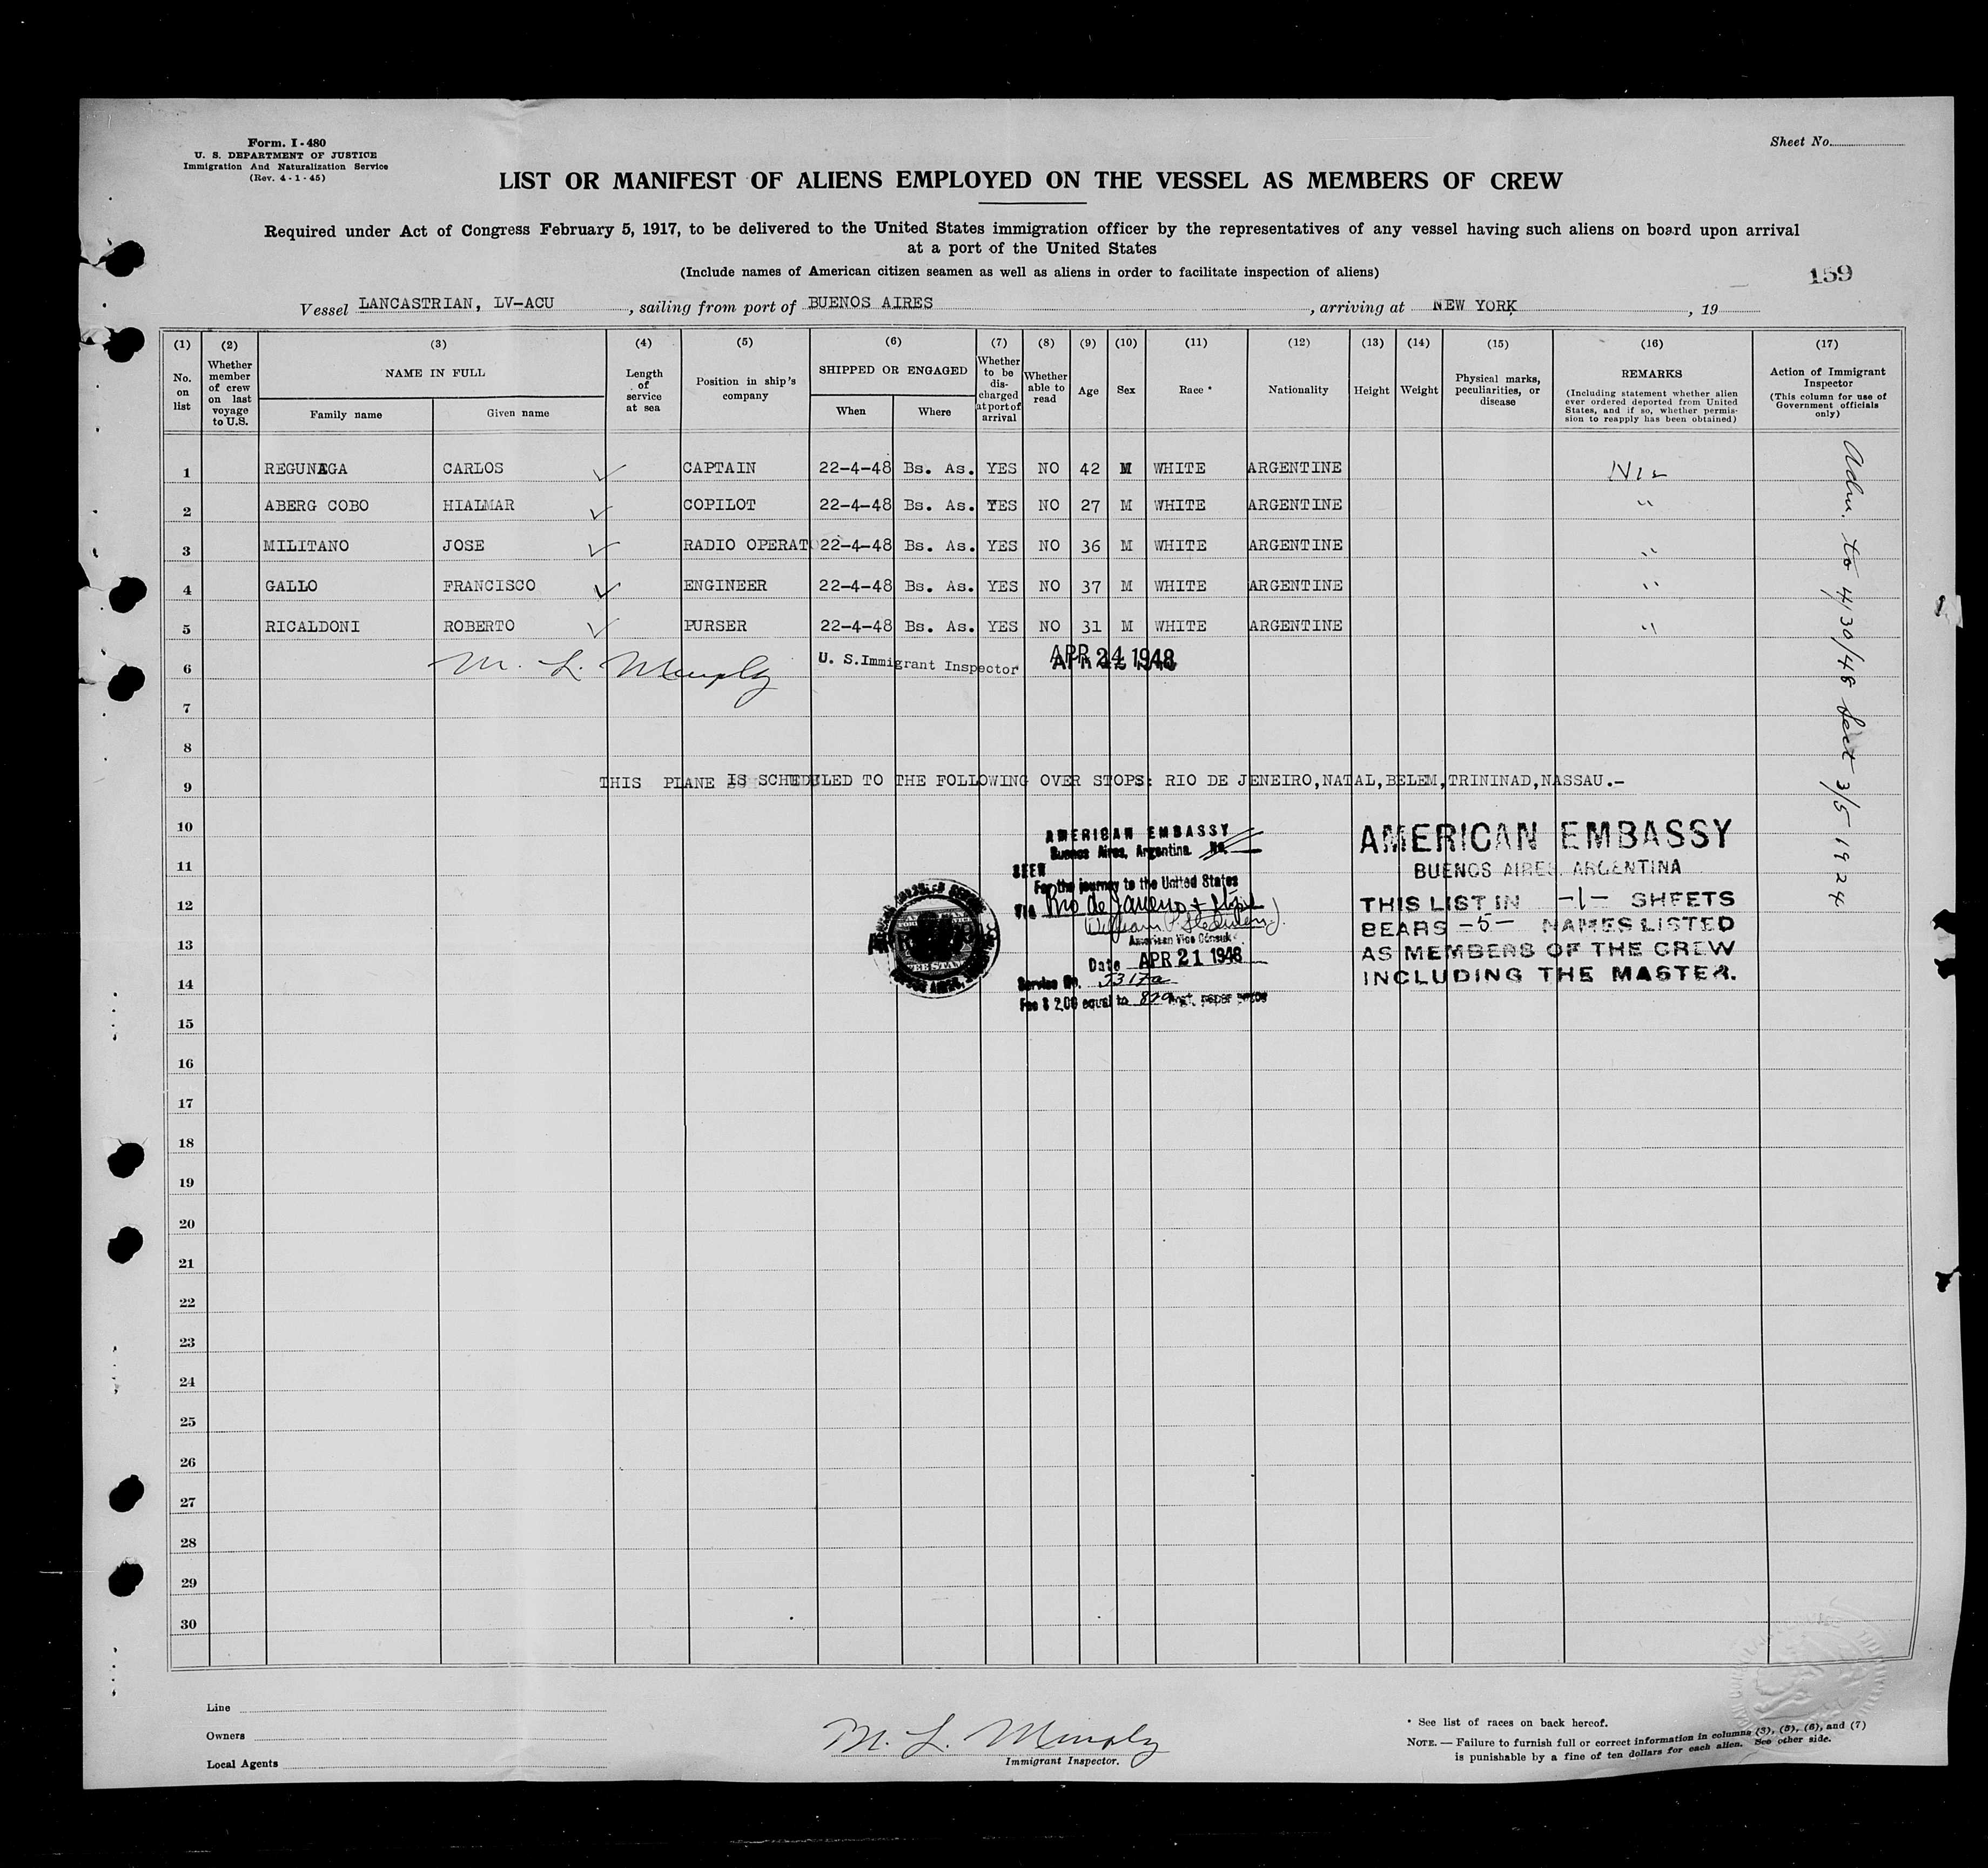 Form. I - 480
U. S. DEPARTMENT OF JUSTICE
Immigration And Naturalization Service
(Rev. 4 - 1 - 45)
Sheet No.
LIST OR MANIFEST OF ALIENS EMPLOYED ON THE VESSEL AS MEMBERS OF CREW
Required under Act of Congress February 5, 1917, to be delivered to the United States immigration officer by the representatives of any vessel having such aliens on board upon arrival
at a port of the United States
(Include names of American citizen seamen as well as aliens in order to facilitate inspection of aliens)
159
Vessel LANCASTRIAN, LV-ACU , sailing from port of BUENOS AIRES , arriving at NEW YORK , 19
(1) (2) (3) (4) (5) (6) (7) (8) (9) (10) (11) (12) (13) (14) (15) (16) (17)
No. on list
Whether member of crew on last voyage to U.S.
NAME IN FULL
Family name Given name
Length of service at sea
Position in ship's company
SHIPPED OR ENGAGED
When Where
Whether to be discharged at port of arrival
Whether able to read
Age
Sex
Race *
Nationality
Height
Weight
Physical marks, peculiarities, or disease
REMARKS
(Including statement whether alien ever ordered deported from United States, and if so, whether permission to reapply has been obtained)
Action of Immigrant Inspector
(This column for use of Government officials only)
1 REGUNAGA CARLOS CAPTAIN 22-4-48 Bs. As. YES NO 42 M WHITE ARGENTINE
2 ABERG COBO HIALMAR COPILOT 22-4-48 Bs. As. YES NO 27 M WHITE ARGENTINE "
3 MILITANO JOSE RADIO OPERAT 22-4-48 Bs. As. YES NO 36 M WHITE ARGENTINE "
4 GALLO FRANCISCO ENGINEER 22-4-48 Bs. As. YES NO 37 M WHITE ARGENTINE "
5 RICALDONI ROBERTO PURSER 22-4-48 Bs. As. YES NO 31 M WHITE ARGENTINE "
Adm. to 4/30/48 Sect 3/5 1924
6 M. L. U. S. Immigrant Inspector APR 24 1948
7
8
9 THIS PLANE IS SCHEDULED TO THE FOLLOWING OVER STOPS: RIO DE JENEIRO,NATAL,BELEM,TRININAD,NASSAU.-
10
11
12
13
14
15
16
17
18
19
20
21
22
23
24
25
26
27
28
29
30
AMERICAN EMBASSY
Buenos Aires, Argentina No.
SEEN
For the journey to the United States
Via Rio de Janeiro +
American Vice Consul
Date APR 21 1948
Service No. 5317a
Fee $ 2.00 equal to
AMERICAN EMBASSY
BUENOS AIRES, ARGENTINA
THIS LIST IN -1- SHEETS
BEARS -5- NAMES LISTED
AS MEMBERS OF THE CREW
INCLUDING THE MASTER.
Line
Owners
Local Agents
M. L.
Immigrant Inspector.
* See list of races on back hereof.
NOTE. — Failure to furnish full or correct information in columns (3), (5), (6), and (7)
is punishable by a fine of ten dollars for each alien. See other side.